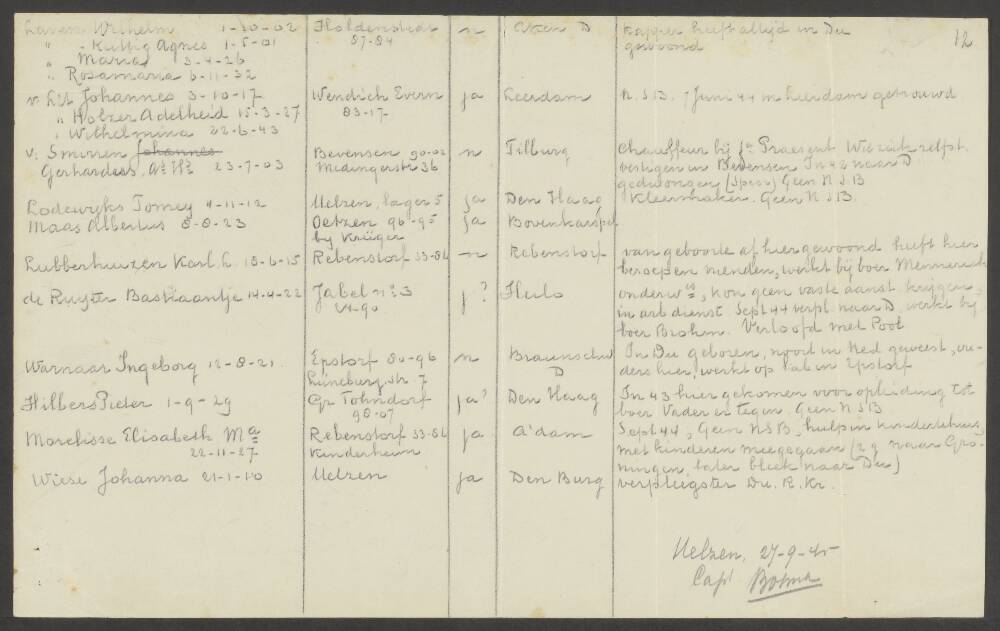 12
Laven Wilhelm 1-10-02 Holdenstedt n Aken D Kapper heeft altijd in Du
" - Küttig Agnes 1-5-01 87-84 gewoond
" Maria 3-4-26
" Rosamaria 6-11-32
v. Johannes 3-10-17 Wendisch Evern ja Leerdam N.S.B. 7 Juni 44 in Leerdam getrouwd
" Holzer Adelheid 15-3-27 83-17
" Wilhelmina 22-6-43
v: Smirren Johannes Bevensen 90-02 n Tilburg Chauffeur bij Praesent Wie zich zelfst.
Gerhardess, 23-7-03 Medingerstr 36 vestigen in Bevensen In 42 naar D
gedwongen (Speer) Geen N S B
Lodewijks Tomey 4-11-12 Uelzen, lager 5 ja Den Haag Kleermaker. Geen N S B.
Maas Albertus 8-8-23 Oetzen 96-95 ja Bovenkarspel
bij Krüger
Lubberhuizen Karl. L. 18-6-15 Rebenstorf 33-86 n Rebenstorf van geboorte af hier gewoond heeft hier
beroepen menden, werkt bij boer Mennerich
de Ruyter Bastiaantje 14-4-22 Jabel no 3 j? Heilo onderw es, kon geen vaste aanst. krijgen,
in arb dienst Sept 44 verpl. naar D werkt bij
boer Brohm. Verloofd met Pool
Warnaar Ingeborg 12-8-21. Epstorf 80-96 n Braunschw In Du geboren, nooit in Ned geweest, ou-
Lüneburg. str 7 D ders hier, werkt op in Epstorf
Hilbers Pieter 1-9-29 Gr Tohndorf ja? Den Haag In 43 hier gekomen voor opleiding tot
98-07 boer Vader er tegen Geen N S B
Marchisse Elisabeth Ma Rebenstorf 33-86 ja A'dam Sept 44, Geen NSB, hulp in kindertehuis,
22-11-27 Kinderheim met kinderen meegegaan (z g naar Gro-
ningen, later bleek naar Du)
Wiese Johanna 21-1-10 Uelzen ja Den Burg verpleegster Du. R. Kr.
Uelzen, 27-9-45
Capt Bosma